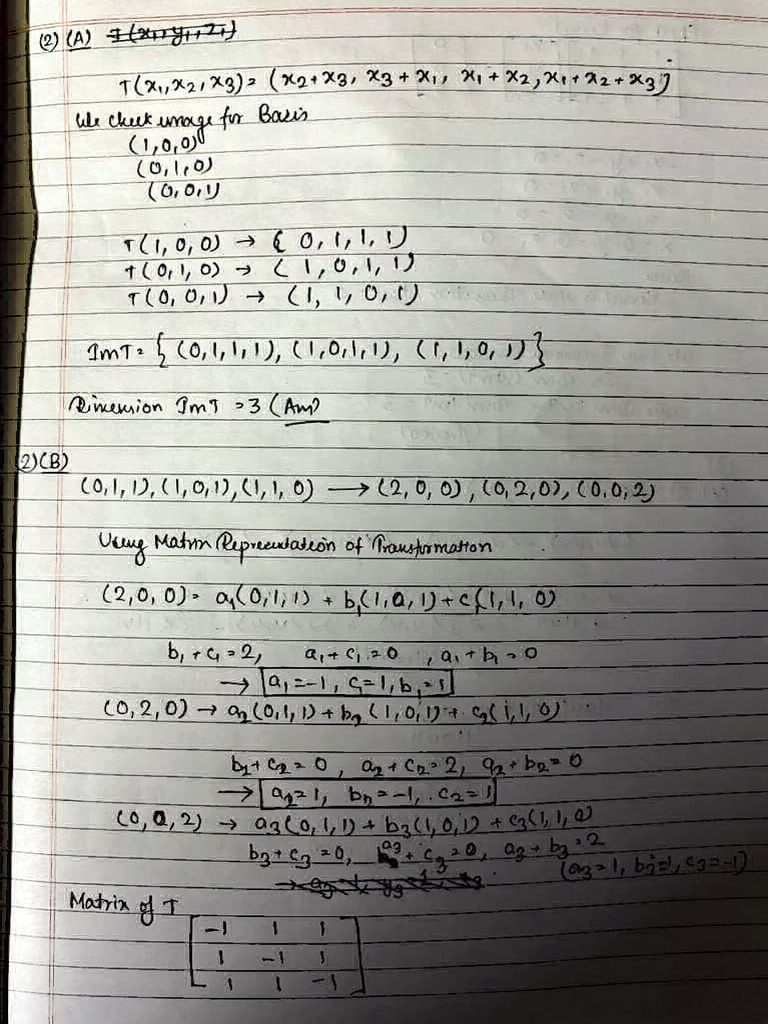 (2) (A)
T(x₁,x₂,x₃) = (x₂+x₃, x₃+x₁, x₁+x₂, x₁+x₂+x₃)
We check image for Basis
(1,0,0)
(0,1,0)
(0,0,1)
T(1,0,0) → ( 0,1,1,1)
T(0,1,0) → ( 1,0,1,1)
T(0,0,1) → (1,1,0,1)
ImT = { (0,1,1,1), (1,0,1,1), (1,1,0,1) }
Dimension ImT = 3 (Ans)
2)(B)
(0,1,1), (1,0,1), (1,1,0) → (2,0,0), (0,2,0), (0,0,2)
Using Matrix Representation of Transformation
(2,0,0) = a₁(0,1,1) + b₁(1,0,1) + c₁(1,1,0)
b₁+c₁=2, a₁+c₁=0, a₁+b₁=0
→ a₁=-1, c₁=1, b₁=1
(0,2,0) → a₂(0,1,1) + b₂(1,0,1) + c₂(1,1,0)
b₂+c₂=0, a₂+c₂=2, a₂+b₂=0
→ a₂=1, b₂=-1, c₂=1
(0,0,2) → a₃(0,1,1) + b₃(1,0,1) + c₃(1,1,0)
b₃+c₃=0, a₃+c₃=0, a₃+b₃=2
(a₃=1, b₃=1, c₃=-1)
Matrix of T
-1 1 1
1 -1 1
1 1 -1